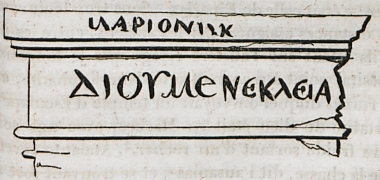 ΙΛΑΡΙΟΝΙΩΚ
ΔΙΟΥΜΕΝΕΚΛΕΙΑ